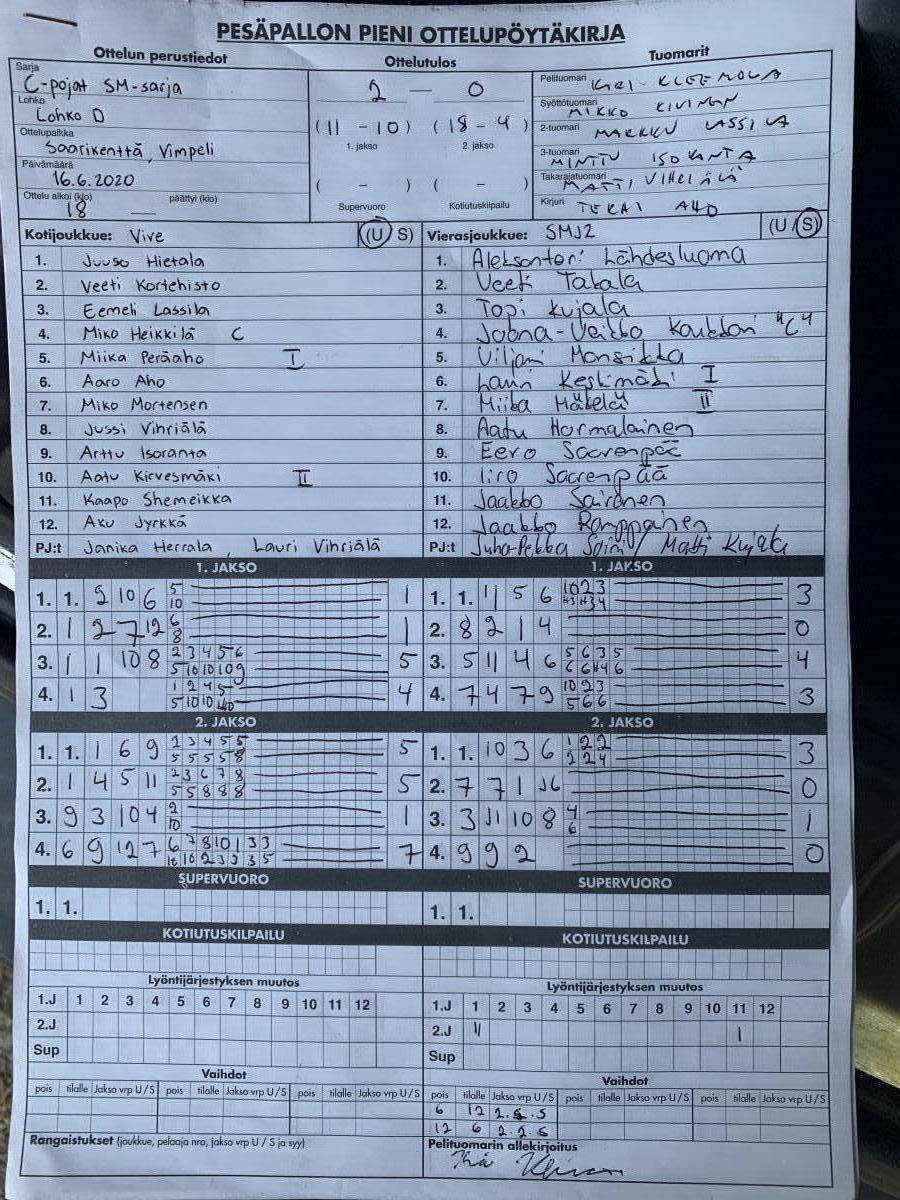 PESÄPALLON PIENI OTTELUPÖYTÄKIRJA
Ottelun perustiedot
Ottelutulos
Tuomarit
Sarja
C-pojat SM-sarja
Lohko
Lohko D
Ottelupaikka
Saarikenttä, Vimpeli
Päivämäärä
16.6.2020
Ottelu alkoi (klo) päättyi (klo)
18 —
2 — 0
(11 - 10) (18 - 4)
1. jakso 2. jakso
( - ) ( - )
Supervuoro Kotiutuskilpailu
Pelituomari
Syöttötuomari
MIKKO
2-tuomari
MARKKU LASSILA
3-tuomari
MINTTU ISOKANTA
Takarajatuomari
MATTI
Kirjuri
AHO
Kotijoukkue: Vive (U S)
1. Juuso Hietala
2. Veeti Kortehisto
3. Eemeli Lassila
4. Miko Heikkilä C
5. Miika Peräaho I
6. Aaro Aho
7. Miko Mortensen
8. Jussi Vihriälä
9. Arttu Isoranta
10. Aatu Kirvesmäki II
11. Kaapo Shemeikka
12. Aku Jyrkkä
PJ:t Janika Herrala, Lauri Vihriälä
Vierasjoukkue: SMJ2 (U/S)
1. Aleksanteri Lähdesluoma
2. Veeti Takala
3. Topi Kujala
4. Joona-Veikko "C"
5. Viljami Mansikka
6. Lauri Keskimäki I
7. Miika Mäkelä II
8. Aatu Harmalainen
9. Eero Saarenpää
10. Iiro Saarenpää
11. Jaakko Sairanen
12. Jaakko Ramppainen
PJ:t Juha-Pekka / Matti Kujala
1. JAKSO
1. 1. 2 10 6 5 1
10
2. 1 2 7 12 6 1
8
3. 1 1 10 8 2 3 4 5 6 5
5 10 10 10 9
4. 1 3 1 2 4 5 4
5 10 10
1. JAKSO
1. 1. 11 5 6 10 2 3 3
2. 8 2 1 4 0
3. 5 11 4 6 5 6 3 5 4
4. 7 4 7 9 10 2 3 3
5 6 6
2. JAKSO
1. 1. 1 6 9 2 3 4 5 5 5
5 5 5 5 8
2. 1 4 5 11 2 3 6 7 8 5
5 5 8 8 8
3. 9 3 10 4 2 1
10
4. 6 9 12 7 6 7 8 10 1 3 3 7
10 10 2 3 3 3 5
2. JAKSO
1. 1. 10 3 6 1 2 2 3
2 2 4
2. 7 7 1 0
3. 3 11 10 8 4 1
6
4. 9 9 2 0
SUPERVUORO
1. 1.
SUPERVUORO
1. 1.
KOTIUTUSKILPAILU
KOTIUTUSKILPAILU
Lyöntijärjestyksen muutos
1.J 1 2 3 4 5 6 7 8 9 10 11 12
2.J
Sup
Lyöntijärjestyksen muutos
1.J 1 2 3 4 5 6 7 8 9 10 11 12
2.J 11 1
Sup
Vaihdot
pois tilalle Jakso vrp U/S pois tilalle Jakso vrp U/S pois tilalle Jakso vrp U/S
Vaihdot
pois tilalle Jakso vrp U/S pois tilalle Jakso vrp U/S pois tilalle Jakso vrp U/S
6 12
12 6 2.2.S
Rangaistukset (joukkue, pelaaja nro, jakso vrp U / S ja syy)
Pelituomarin allekirjoitus